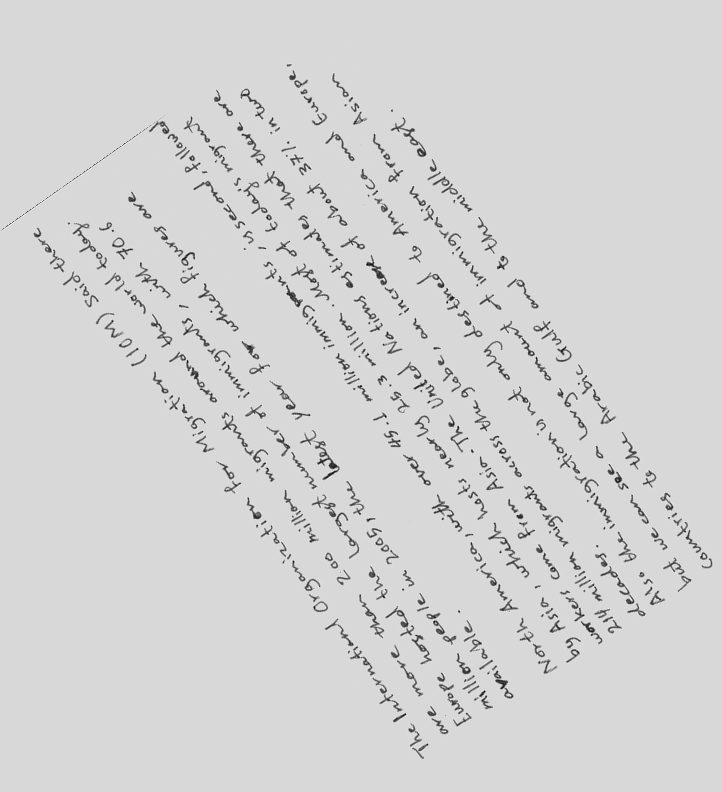 The International Organization for Migration (IOM) said there
are more than 200 million migrants around the world today.
Europe hosted the largest number of immigrants, with 70.6
million people in 2005, the latest year for which figures are
available.
North America, with over 45.1 million immigrants, is second, followed
by Asia, which hosts nearly 25.3 million. Most of today's migrant
workers come from Asia. The United Nations estimates that there are
214 million migrants across the globe, an increase of about 37% in two
decades.
Also the immigration is not only destined to America and Europe,
but we can see a large amount of immigration from Asian
countries to the Arabic Gulf and to the middle east.